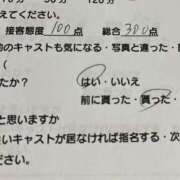 接客態度 100点 総合 300点
的のキャストも気になる・写真と違った・
たか? はい・いいえ
前に貰った・貰った・
と思いますか
いキャストが居なければ指名する・次
ださい。